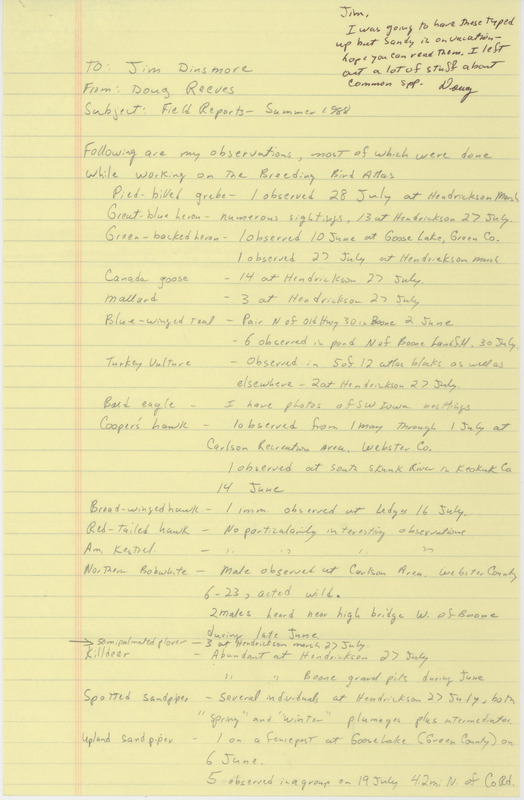 Jim,
I was going to have these typed
up but Sandy is on vacation-
hope you can read them. I left
out a lot of stuff about
common spp. Doug
To: Jim Dinsmore
From: Doug Reeves
Subject: Field Reports - Summer 1988
Following are my observations, most of which were done
while working on the Breeding Bird Atlas
Pied-billed grebe - 1 observed 28 July at Hendrickson Marsh
Great-blue heron - numerous sightings, 13 at Hendrickson 27 July.
Green-backed heron - 1 observed 10 June at Goose Lake, Green Co.
1 observed 27 July at Hendrickson marsh
Canada goose - 14 at Hendrickson 27 July.
Mallard - 3 at Hendrickson 27 July
Blue-winged teal - Pair N of Old Hwy 30 in Boone 2 June
- 6 observed in pond N of Boone Landfill. 30 July.
Turkey Vulture - Observed in 5 of 12 atlas bloks as well as
elsewhere - 2 at Hendrickson 27 July.
Bald eagle - I have photos of SW Iowa nestlings
Cooper's hawk - 1 observed from 1 May through 1 July at
Carlson Recreation Area, Webster Co.
1 observed at South Skunk River in Keokuk Co
14 June
Broad-winged hawk - 1 imm. observed at Ledges 16 July.
Red-tailed hawk - No particularily interesting observations
Am. Kestrel - " " " "
Northern Bobwhite - Male observed at Carlson Area. Webster County
6-23, acted wild.
2 males heard near high bridge W. of Boone
during late June
→ Semipalmated plover - 3 at Hendrickson marsh 27 July.
Killdeer - Abundant at Hendrickson 27 July
" " Boone gravel pits during June
Spotted sandpiper - Several individuals at Hendrickson 27 July, both
"spring" and "winter" plumages plus intermediates.
Upland sandpiper - 1 on a fencepost at Goose Lake (Green County) on
6 June.
5 observed in a group on 19 July 4.2 mi N. of Co Rd.